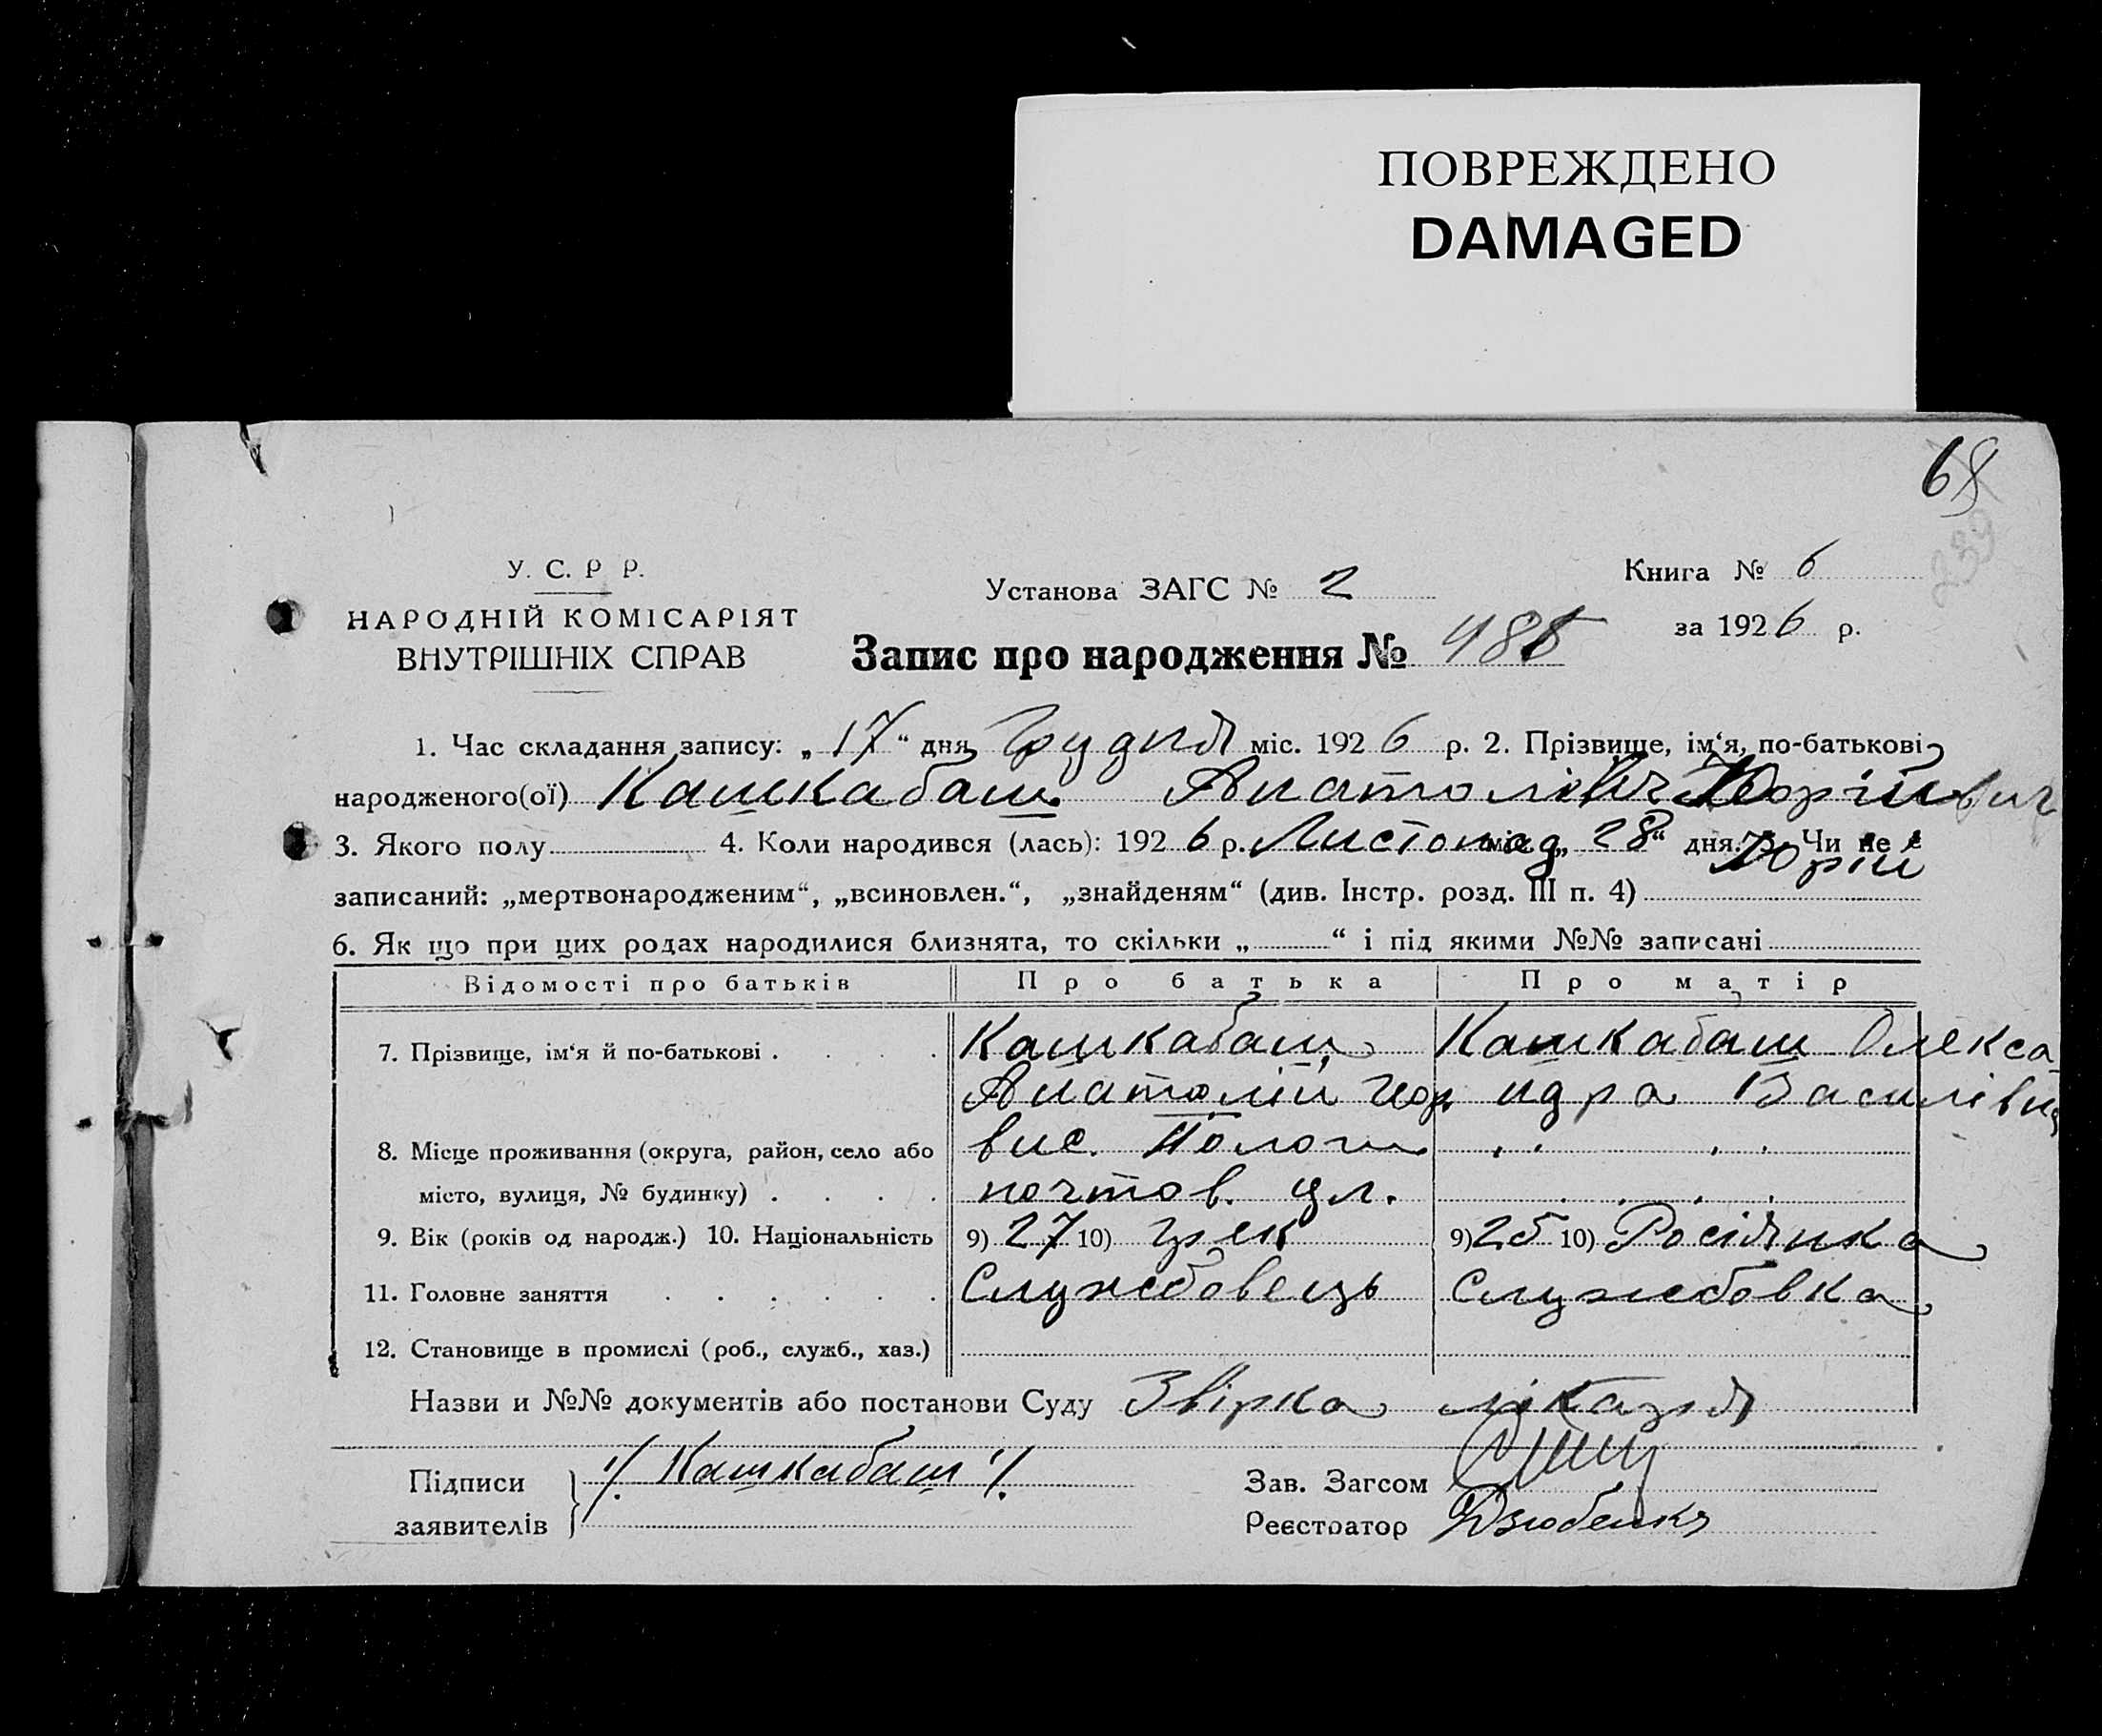 ПОВРЕЖДЕНО
DAMAGED
68
239
У. С. Р Р.
НАРОДНІЙ КОМІСАРІЯТ
ВНУТРІШНІХ СПРАВ
Установа ЗАГС № 2
Книга № 6
за 1926 р.
Запис про народження № 485
1. Час складання запису: „17“ дня Грудня міс. 1926 р. 2. Прізвище, ім‘я, по-батькові
народженого(ої) Кашкабаш Анатолієвич Юрій
3. Якого полу 4. Коли народився (лась): 1926 р. Листопад міс. „28“ дня. 5. Чи не є
Юрій
записаний: „мертвонародженим“, „всиновлен.“, „знайденям“ (див. Інстр. розд. III п. 4)
6. Як що при цих родах народилися близнята, то скільки „ “ і під якими №№ записані
Відомості про батьків Про батька Про матір
7. Прізвище, ім‘я й по-батькові . . . . Кашкабаш Кашкабаш Олекса
Анатолій ндра Василівна
8. Місце проживання (округа, район, село або вис. Пологи " "
місто, вулиця, № будинку) . . . . почтов. ул. " "
9. Вік (років од народж.) 10. Національність 9) 27 10) грек 9) 25 10) Росіянка
11. Головне заняття . . . . . . Службовець Службовка
12. Становище в промислі (роб., служб., хаз.)
Назви и №№ документів або постанови Суду Звірка лікаря
Підписи /Кашкабаш/
заявителів
Зав. Загсом
Реєстратор Дзюбенко